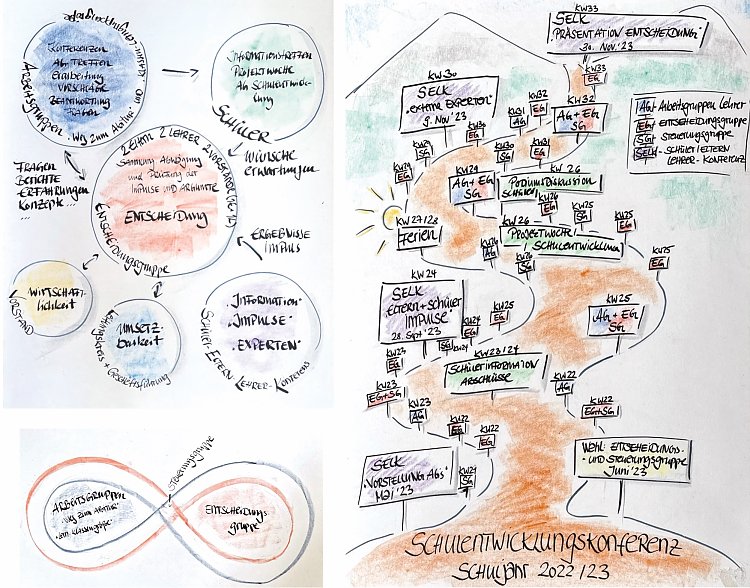 KONFERENZEN
AG TREFFEN
Erarbeitung
VORSCHLÄGE
BEANTWORTUNG
FRAGEN
ARBEITSGRUPPEN
• Weg zum Abitur
INFORMATIONSTREFFEN
PROJEKTWOCHE
AG SCHULENTWICK-
lung
SCHÜLER
WÜNSCHE
erwartungen
FRAGEN
BERICHTE
ERFAHRUNGEN
KONZEPTE
...
2 ELTERN 2 LEHRER 2 VORSTÄNDE
Sammlung Abwägung
und Prüfung der
IMPULSE UND ARGUMENTE
ENTSCHEIDUNG
ENTSCHEIDUNGSGRUPPE
ERGEBNISSE
IMPULS
WIRTSCHAFT-
lichkeit
VORSTAND
UMSETZ-
barkeit
Leitungskreis + Geschäftsführung
• INFORMATION •
• IMPULSE •
• EXPERTEN •
SCHÜLER-ELTERN LEHRER-KONFERENZ
Steuerungsgruppe
ARBEITSGRUPPEN
• Weg zum Abitur
ENTSCHEIDUNGS
gruppe
KW33
SELK
PRÄSENTATION ENTSCHEIDUNG
30. NOV. '23
KW33
EG
KW30
SELK
"externe EXPERTEN"
9. NOV. '23
KW32
EG
KW31
AG
KW32
AG + EG
SG
AG = Arbeitsgruppen Lehrer
EG = ENTSCHEIDUNGSGRUPPE
SG = STEUERUNGSGRUPPE
SELK = SCHÜLER / ELTERN
LEHRER - KONFERENZ
KW30
EG
KW29
SG
KW30
SG
KW31
EG
KW29
EG
KW29
AG + EG
SG
KW 26
PODIUMSDISKUSSION
SCHÜLER
KW26
EG
KW25
SG
KW27/28
FERIEN
KW 26
PROJEKTWOCHE
SCHULENTWICKLUNG
KW25
EG
KW26
AG
KW26
SG
KW25
EG
KW24
SELK
ELTERN + SCHÜLER
IMPULSE
28. Sept '23
KW25
EG
KW25
AG + EG
SG
KW24
EG
SG
KW24
KW23
EG
KW23/24
SCHÜLERINFORMATION
ABSCHLÜSSE
KW23
EG+SG
KW23
AG
KW22
AG
KW22
EG+SG
KW22
EG
KW22
EG
SELK
"VORSTELLUNG AGs"
MAI '23
KW21
SG
WAHL: ENTSCHEIDUNGS-
- UND STEUERUNGSGRUPPE
JUNI '23
SCHULENTWICKLUNGSKONFERENZ
SCHULJAHR 2022/23